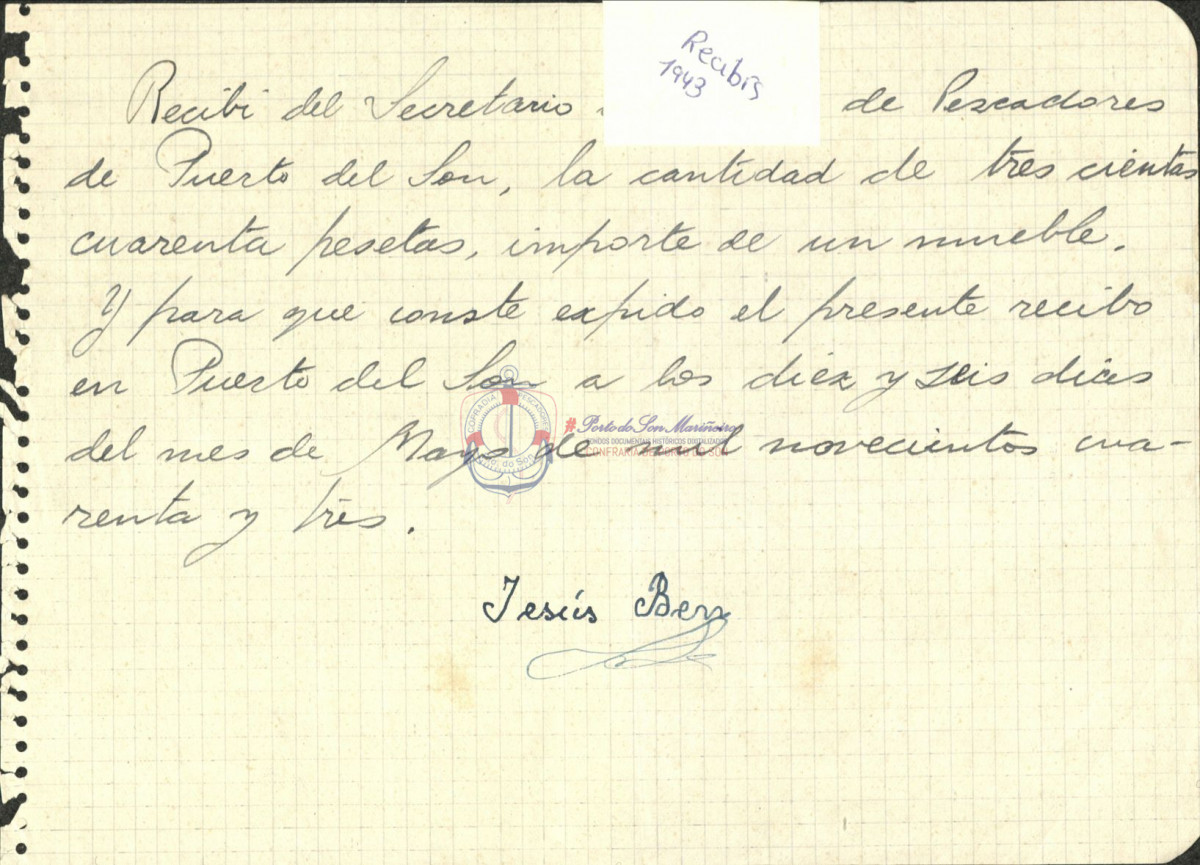 Recibís
1943
Recibi del Secretario de Pescadores
de Puerto del Son, la cantidad de tres cientas
cuarenta pesetas, importe de un mueble.
Y para que conste expido el presente recibo
en Puerto del Son a los diez y seis dias
del mes de Mayo de mil novecientos cua-
renta y tres.
COFRADIA PESCADORES
Pto. do Son
#Porto do Son Mariñeiro
FONDOS DOCUMENTAIS HISTÓRICOS DIXITALIZADOS
CONFRARÍA DE PORTO DO SON
Jesús